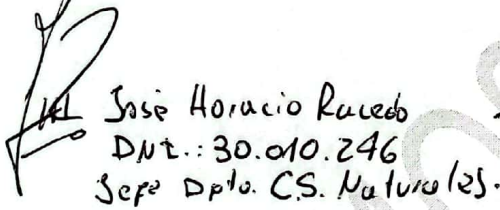 José Horacio Racedo
DNI.: 30.010.246
Jefe Dpto. C.S. Naturales.